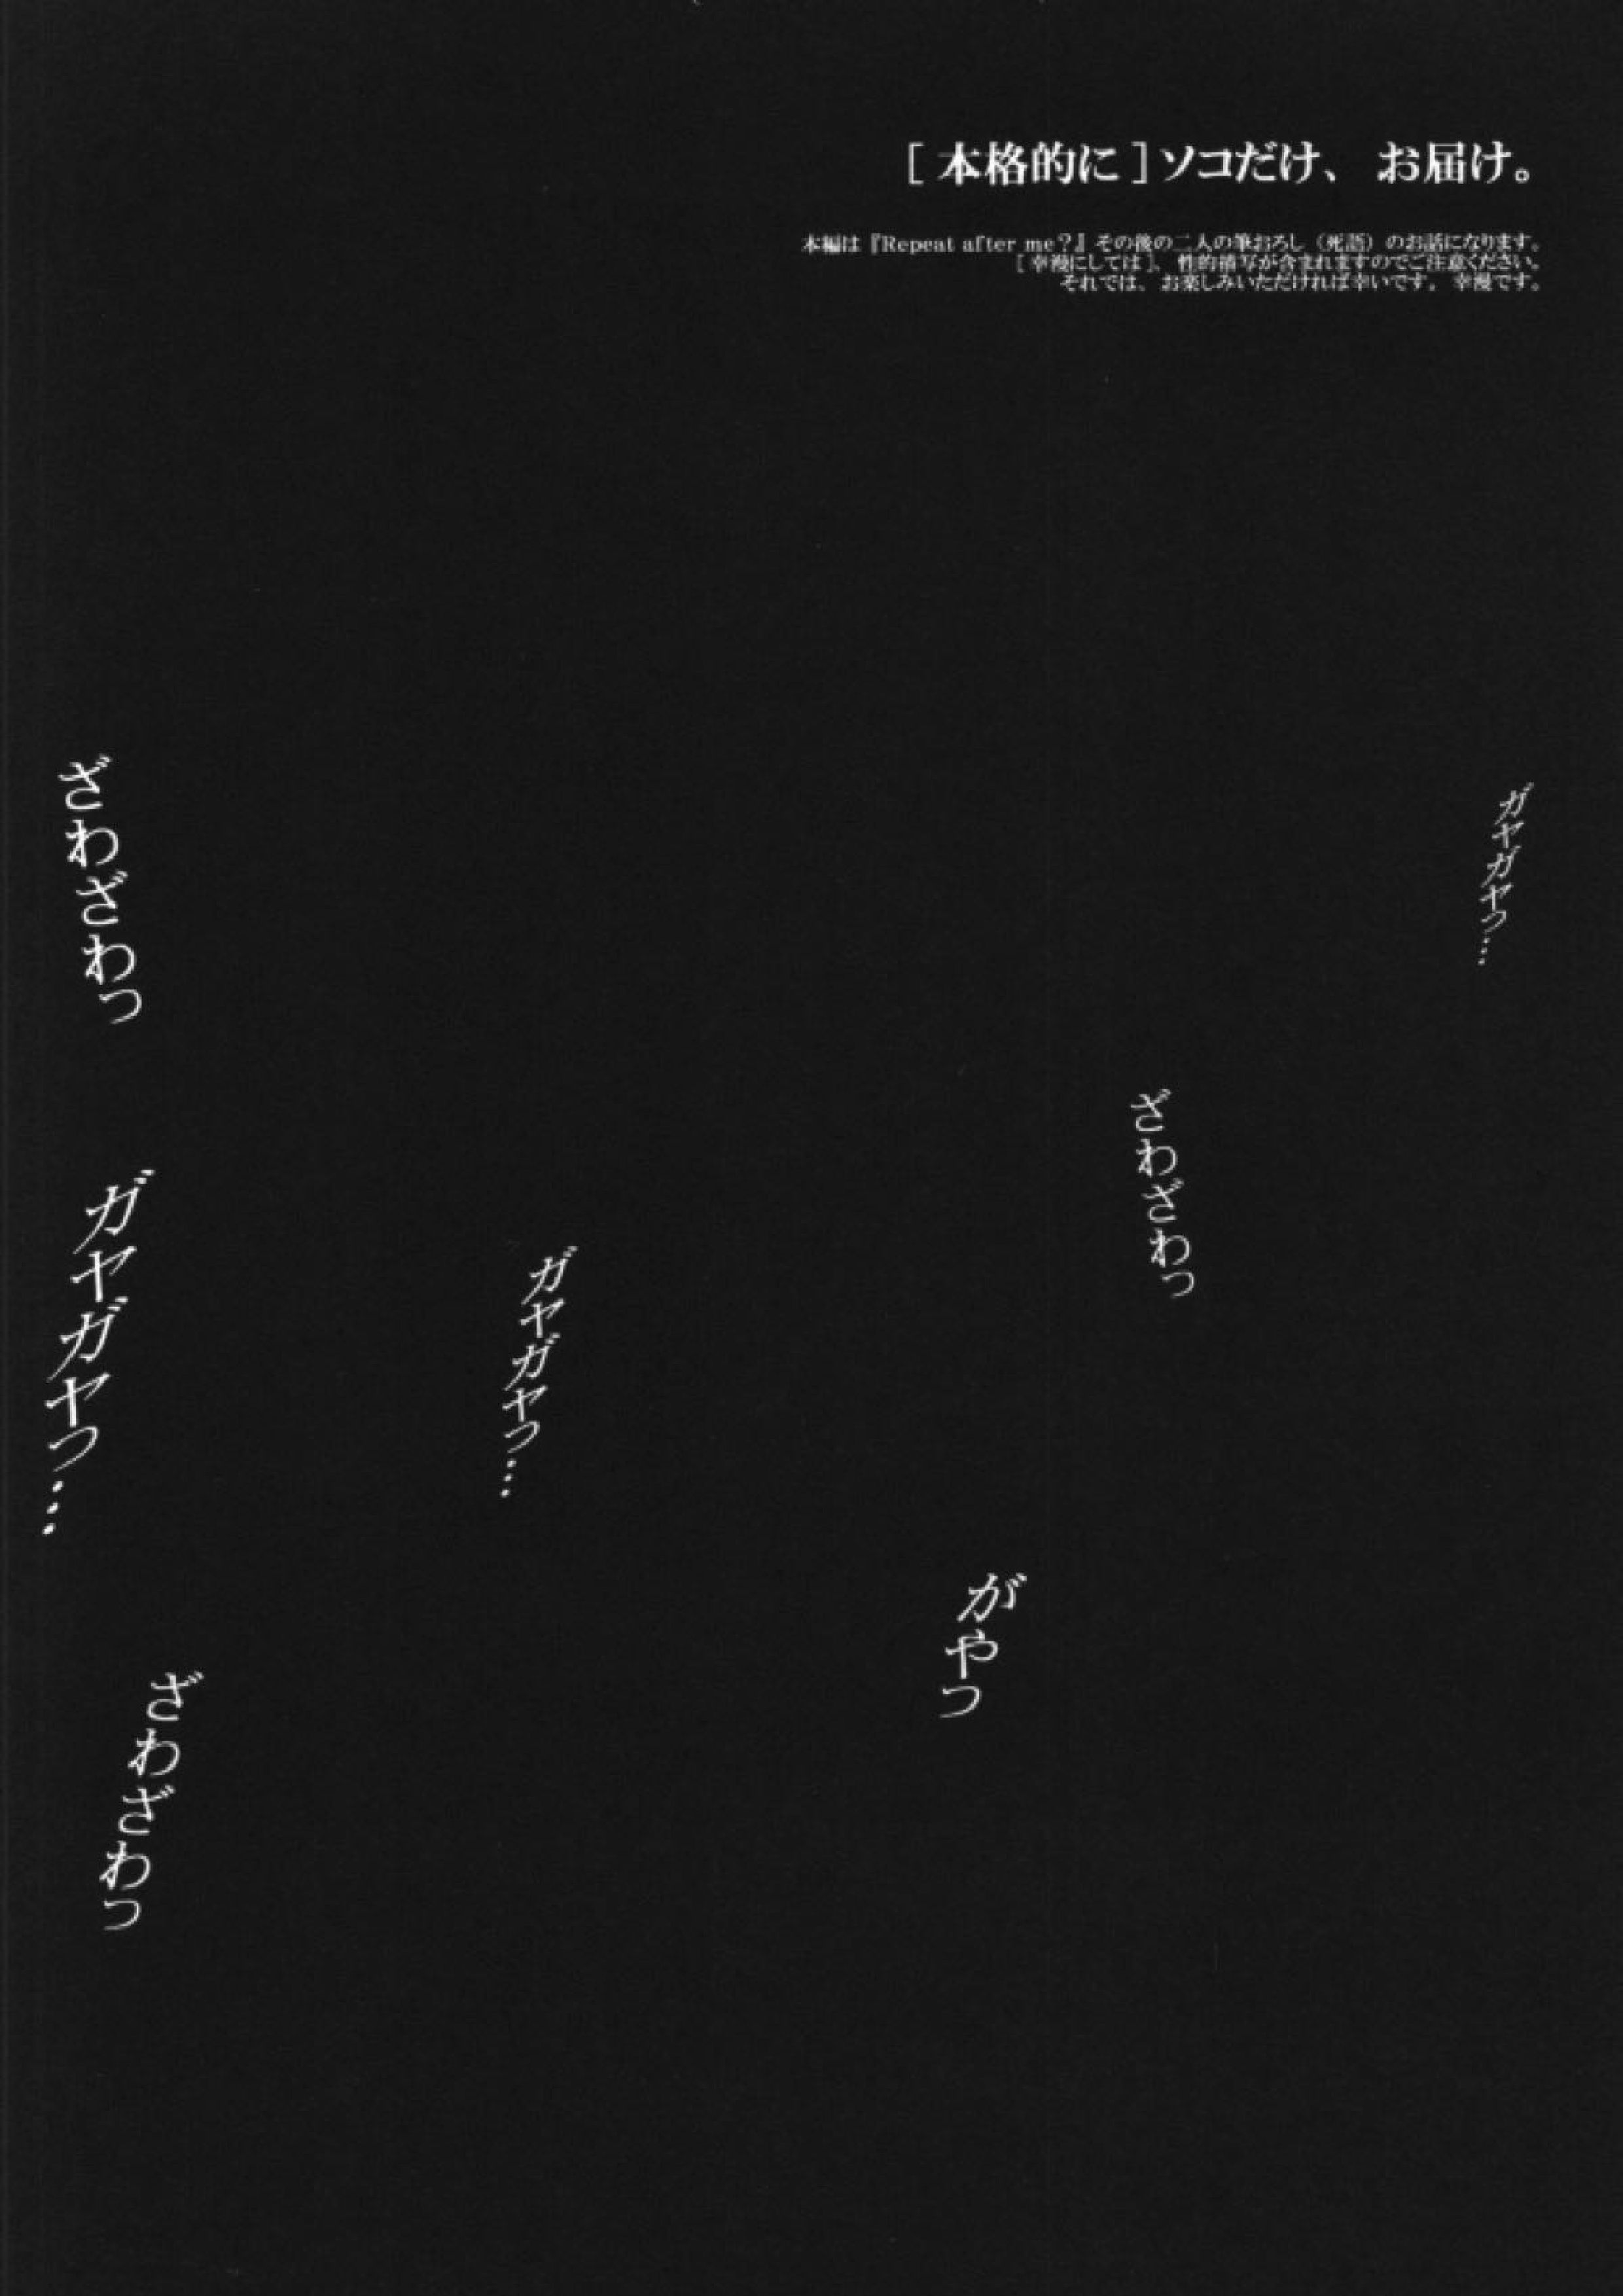 [本格的に]ソコだけ、お届け。
本編は『Repeat after me？』その後の二人の筆おろし（死語）のお話になります。
[幸漫にしては]、性的描写が含まれますのでご注意ください。
それでは、お楽しみいただければ幸いです。幸漫です。
ガヤガヤっ…
ざわざわっ
がやっ
ガヤガヤっ…
ざわざわっ
ガヤガヤっ…
ざわざわっ